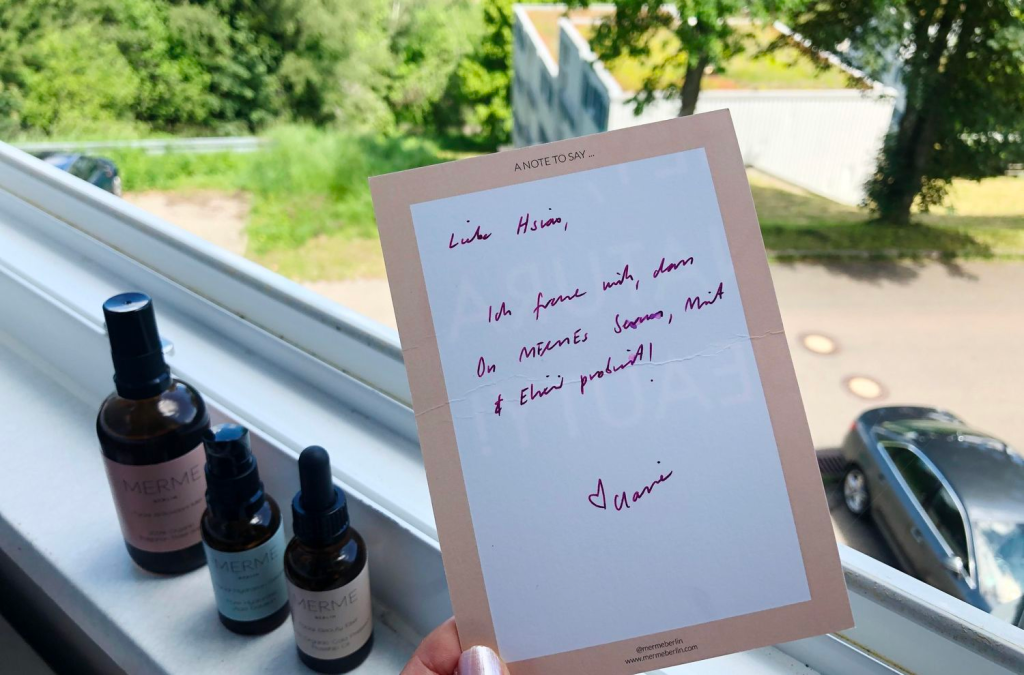 A NOTE TO SAY ...
Liebe Hsiao,
Ich freue mich, dass
Du MERMEs Serum, Mist
& Elixir probierst!
♡ Claire
@mermeberlin
www.mermeberlin.com
MERME
BERLIN
MERME
BERLIN
MERME
BERLIN